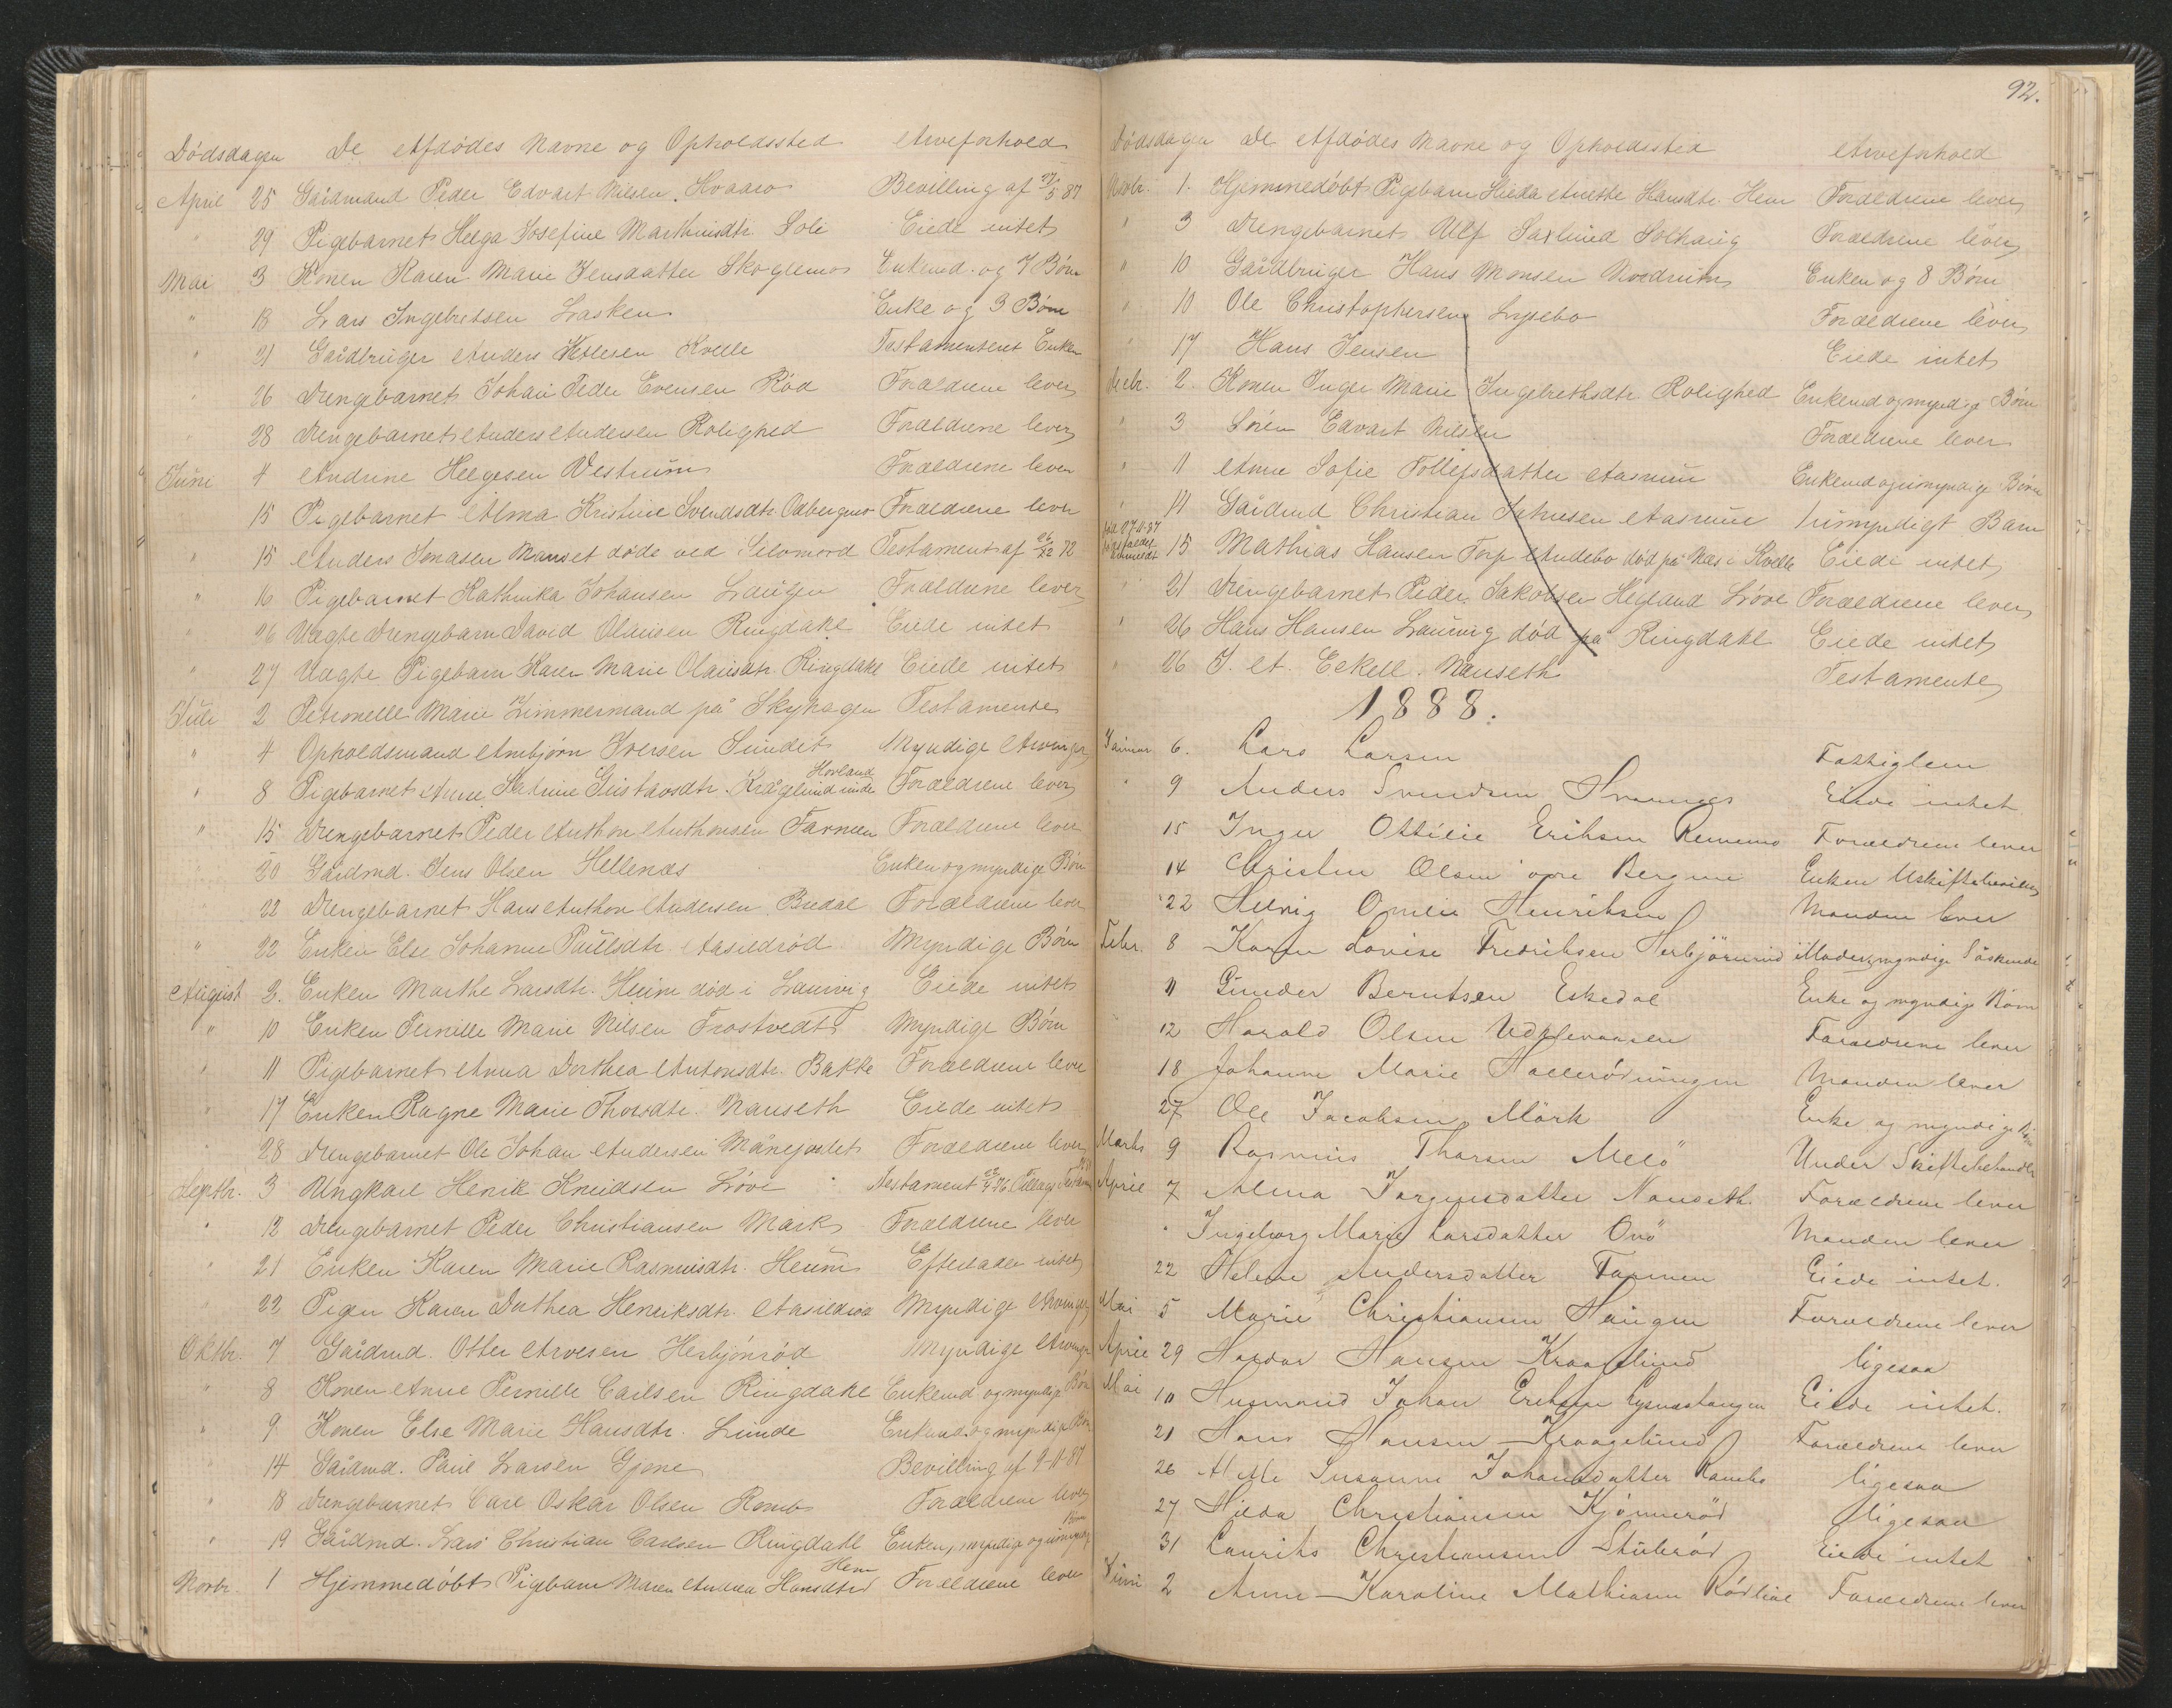 Dødsdagen De Afdødes Navne og Opholdssted Arveforhold
April 25 Gårdmand Peder Edvart Nilsen Hvaara Bevilling af 27/5 87
" 29 Pigebarnet Helga Josefine Marthinisdtr. Soli Eiede intet
Mai 3 Konen Karen Marie Jensdatter Skoglemo Enkemd. og 7 Børn
" 13 Lars Ingebretsen Lasken Enke og 3 Børn
" 21 Gårdbruger Anders Kvelle Testamenteret Enken
" 26 Drengebarnet Johan Peder Evensen Rød Forældrene lever
" 28 Drengebarnet Anders Andersen Rolighed Forældrene lever
Juni 4 Andrine Helgesen Vestrum Forældrene lever
15 Pigebarnet Alma Kristine Svendsdtr. Forældrene lever
" 15 Anders Jonasen Manset døde ved Selvmord Testament af 26/22 72
" 16 Pigebarnet Kathinka Johansen Laugen Forældrene lever
" 26 Uægte Drengebarn David Olaussen Ringdahl Eiede intet
" 27 Uægte Pigebarn Karen Marie Olausdtr. Ringdahl Eiede intet
Juli 2 Petronelle Marie Zimmermand på Skyhagen Testamente
" 4 Opholdsmand Arnbjørn Iversen Sundet Myndige Arvinger
Hovland
" 8 Pigebarnet Anne Katrine Gustavsdtr. Kråglund Forældrene lever
" 15 Drengebarnet Peder Anthon Anthonsen Farmen Forældrene lever
20 Gårdmd. Jens Olsen Hellenæs Enken og myndige Børn
22 Drengebarnet Hans Anthon Andersen Bredal Forældrene lever
" 22 Enken Else Johanne Poulsdtr. Aasildrød Myndige Børn
August 2. Enken Marthe Larsdtr. Heum død i Laurvig Eiede intet
" 10 Enken Pernille Marie Nilsen Trostvedt Myndige Børn
" 11 Pigebarnet Anna Dorthea Antonsdtr. Bakke Forældrene lever
17 Enken Ragne Marie Thorsdtr. Nauseth Eiede intet
28 Drengebarnet Ole Johan Andersen Månejordet Forældrene lever
Septbr. 3 Ungkarl Henrik Knudsen Løve Testament
" 12 Drengebarnet Peder Christiansen Mørk Forældrene lever
" 21 Enken Karen Marie Rasmusdtr. Heum Efterlader intet
" 22 Pigen Karen Dorthea Henriksdtr. Aasildrød Myndige Arvinger
Oktbr. 7 Gårdmd. Otter Arvesen Herbjønrød Myndige Arvinger
" 8 Konen Anne Pernille Carlsen Ringdahl Enkemd og myndige Børn
" 9 Konen Else Marie Hansdtr. Lunde Enkemd. og myndige Børn
" 14 Gårdmd. Paul Larsen Gjone Bevilling af 9-11-87
" 18 Drengebarnet Carl Oskar Olsen Forældrene lever
Børn
" 19 Gårdmd. Lars Christian Carlsen Ringdahl Enken, myndige og umyndige
Hem
Novbr. 1 Hjemmedøbt Pigebarn Maren Andrea Hansdtr Forældrene lever
92.
Dødsdagen De Afdødes Navne og Opholdssted Arveforhold
Novbr. 1. Hjemmedøbt Pigebarn Hilda Anette Hansdtr. Hem Forældrene lever
" 3 Drengebarnet Ulf Saxlund Solhaug Forældrene lever
" 10 Gårdbruger Hans Monsen Nordrum Enken og 8 Børn
" 10 Ole Christophersen Lysebo Forældrene lever
" 17 Hans Jensen Eiede intet
Decbr. 2. Konen Inger Marie Ingebrethsdtr. Rolighed Enkemd og myndige Børn
" 3 Søren Edvart Nilsen Forældrene lever
" 11 Anne Sofie Tollefsdatter Aasrum Enkemd og umyndige Børn
" 11 Gårdmd Christian Johnsen Aasrum 1 umyndigt Barn
15 Mathias Hansen Torp Andebo død på Næs i Kvelle Eiede intet
" 21 Drengebarnet Peder Jakobsen Hegland Løve Forældrene lever
" 26 Hans Hansen Laurvig død på Ringdahl Eiede intet
" 26 J. A. Eckell. Nauseth Testamente
1888.
Januar 6. Lars Larsen Fattiglem
" 9 Anders Svendsen Eiede intet
15 Inger Ottilie Eriksen Forældrene lever
14 Christen Olsen øvre Bergene Enken Uskiftebevilling
22 Helvig Omelie Henriksen Manden lever
Febr. 8 Karen Lovise Fredriksen Moder, myndige Söskende
11 Gunder Berntsen Eskedal Enke og myndige Børn
12 Harald Olsen Forældrene lever
18 Johanne Marie Hallerödningen Manden lever
27 Ole Jacobsen Mörk Enke og myndige Børn
Marts 9 Rasmus Tharsen Melö Under Skiftebehandl.
April 7 Alma Jörgensdatter Nauseth. Forældrene lever
" Ingeborg Marie Larsdatter Onö Manden lever
22 Helene Andersdatter Farmen Eiede intet.
Mai 5 Marie Christiansen Haugen Forældrene lever
April 29 Hansen Kraaglund ligesaa
Mai 10 Husmand Johan Eriksen Eiede intet.
21 Hans Hansen Kraaglund Forældrene lever
26 Susanne Johansdatter ligesaa
27 Hilda Christiansen Kjönnerød ligesaa
31 Laurits Christiansen Stuberød Eiede intet
Juni 2 Anne Karoline Mathiasen Forældrene lever